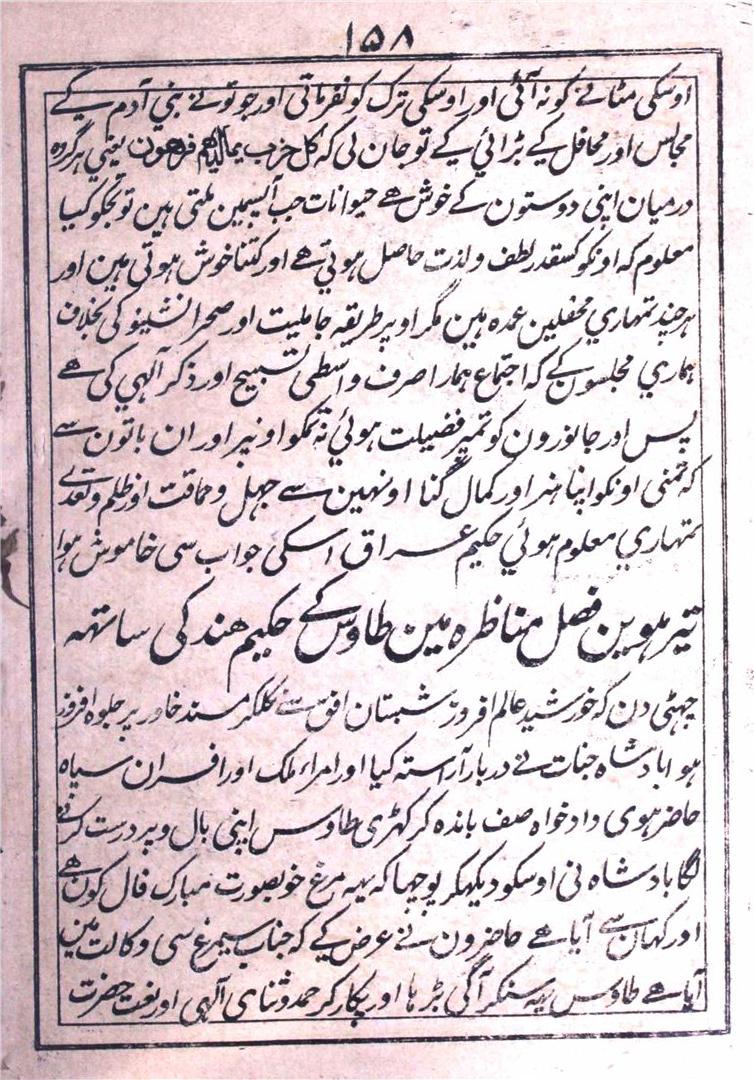 ۱۵۸
اوسکی مٹانے کو نہ آئی اور اوسکی ترک کو نفرماتی اور جو تونے بنی آدم کے
مجالس اور محافل کے بڑائی کے تو جان لی کہ کل حزب بمالدیهم فرحون یعنی هر گروه
درمیان اپنی دوستون کے خوش ھے حیوانات جب آپسمین ملتی ہین تو تجکو کیا
معلوم کہ اونکو کسقدر لطف و لذت حاصل ہوتی ھے اور کتنا خوش ہوتی ہین اور
ہرچند تمہاری محفلین عمدہ ہین مگر اوپر طریقہ جاہلیت اور صحرا نشینو کی بخلاف
ہماری مجلسون کے کہ اجتماع ہمارا صرف واسطی تسبیح اور ذکر آلہی کی ھے
پس اور جانورون کو تمپر فضیلت ہوئی نہ تمکو اونپر اور ان باتون سے
کہ تمنی اونکو اپنا ہنر اور کمال گنا اونہین سے جہل و حماقت اور ظلم و تعدی
تمہاری معلوم ہوئی حکیم عراق اسکی جواب سی خاموش ہوا
تیرہوین فصل مناظرہ مین طاوس کے حکیم ھند کی ساتھہ
چہٹی دن کہ خورشید عالم افروز شبستان افق سے نکلکر مسند خاور پر جلوہ افروز
ہوا بادشاہ جنات نے دربار آراستہ کیا اور امراء ملک اور افسران سپاہ
حاضر ہوی داد خواہ صف باندہ کر کہڑی طاوس اپنی بال و پر درست کرنے
لگا بادشاہ نی اوسکو دیکہکر پوچہا کہ یہہ مرغ خوبصورت مبارک فال کون ھے
اور کہان سے آیا ھے حاضرون نے عرض کے کہ جناب سیمرغ سی وکالت مین
آیا ھے طاوس یہہ سنکر آگی بڑہا اور پکار کر حمد و ثنای آلہی اور نعت حضرت